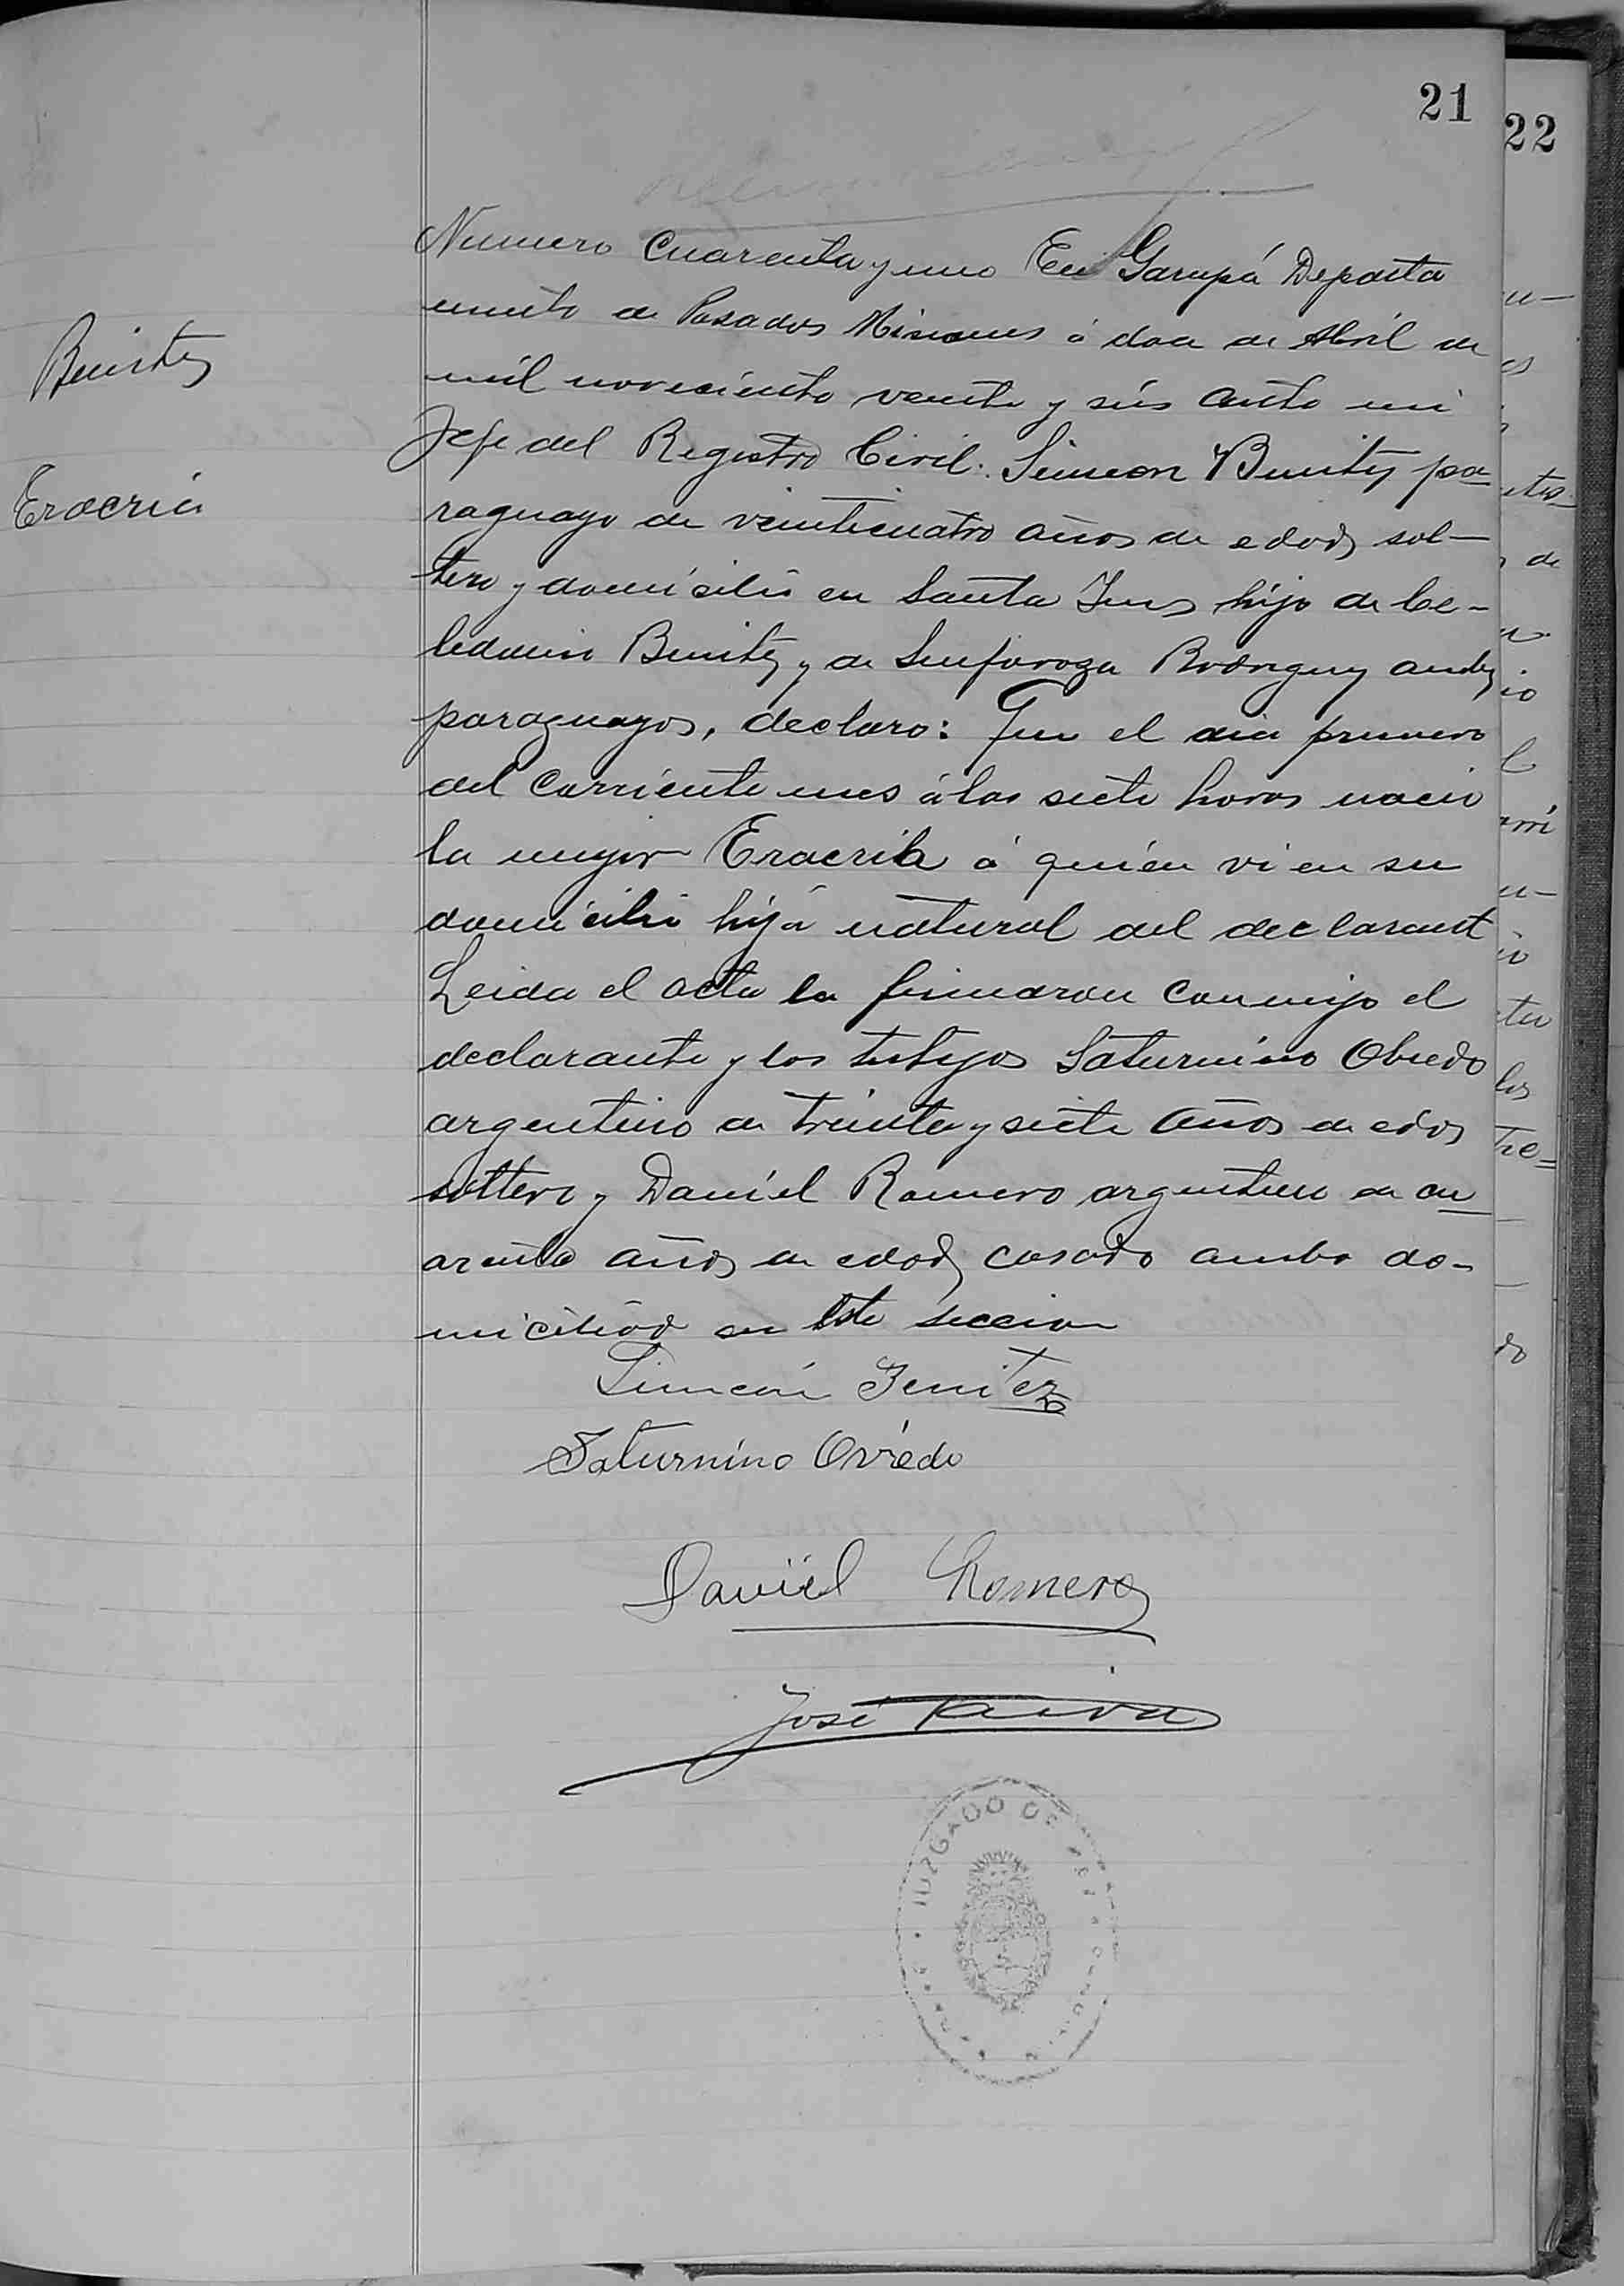 21
22
Numero Cuarenta y uno En Garupá Departa
mento de Posadas Misiones á doce de Abril de
Benitez
mil noveciento veinte y seis ante mi
Jefe del Registro Civil: Simeon Benitez pa
Eracria
raguayo de veinticuatro años de edad, sol-
tero y domicilio en Santa Ines hijo de Ce-
ledonio Benitez y de Sinforoza Rodriguez ambos
paraguayos, declaro: Que el dia primero
del corriente mes á las siete horas nacio
la mujer Eracria á quien vi en su
domicilio hija natural del declarant
Leida el acta la firmaron conmigo el
declarante y los testigos Saturnino Obiedo
argentino de treinta y siete años de edad
soltero y Daniel Romero argentino de cu
arenta años de edad, casado ambo do-
miciliad en este seccion
Simeón Benitez
Saturnino Oviedo
Daniel Romero
José
JUZGADO DE PAZ